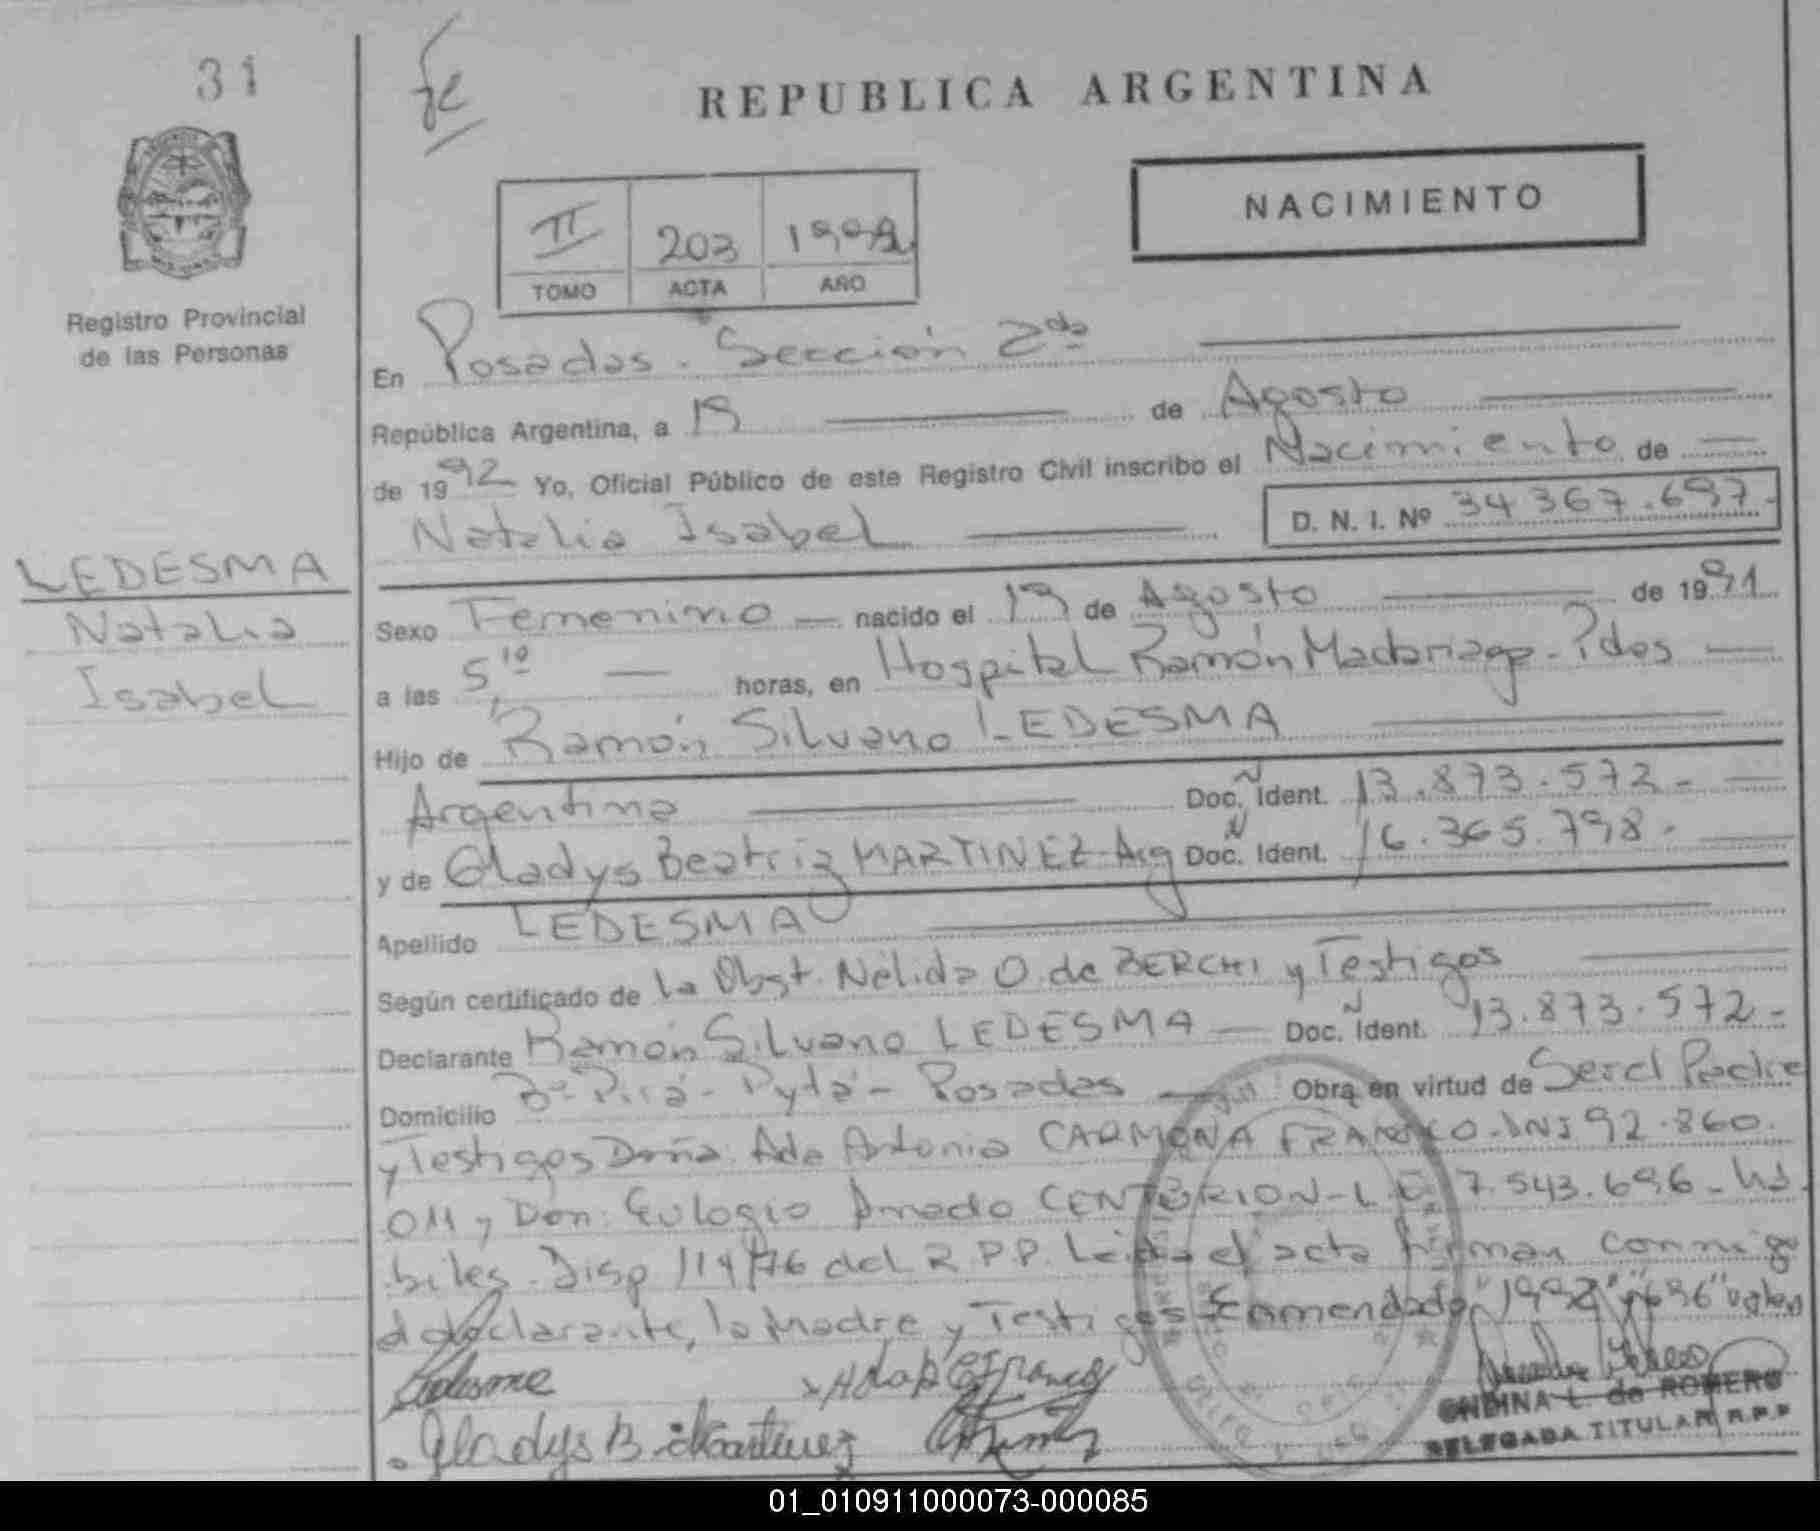 31
REPUBLICA ARGENTINA
NACIMIENTO
II 203 1992
TOMO ACTA AÑO
Registro Provincial
de las Personas
En Posadas. Sección 2da
República Argentina, a 19 de Agosto
de 1992 Yo, Oficial Público de este Registro Civil inscribo el Nacimiento de
Natalia Isabel D. N. I. Nº 34367.697-
LEDESMA
Natalia
Isabel
Sexo Femenino nacido el 19 de Agosto de 1991
a las 5,10 horas, en Hospital Ramón Madariaga - Pdas
Hijo de Ramón Silvano LEDESMA
Argentina Doc. Ident. 13.873.572-
y de Gladys Beatriz MARTINEZ-Arg Doc. Ident. 16.365.798-
Apellido LEDESMA
Según certificado de la Obst. Nélida O. de BERCHI y Testigos
Declarante Ramón Silvano LEDESMA Doc. Ident. 13.873.572-
Domicilio Bº Pirá-Pytá - Posadas Obra en virtud de Ser el Padre
y Testigos Doña: Ada Antonia CARMONA FRANCO-DNI 92.860.
011 y Don: Eulogio Amado CENTURION-L.E. 7.543.696- há
biles. Disp 114/76 del R.P.P. Leída el acta firman conmigo
el declarante, la Madre y Testigos Enmendado "1992" y "696" valen
Ledesma
Gladys B. Martinez
ONDINA L. de ROMERO
DELEGADA TITULAR R.P.P
01_010911000073-000085